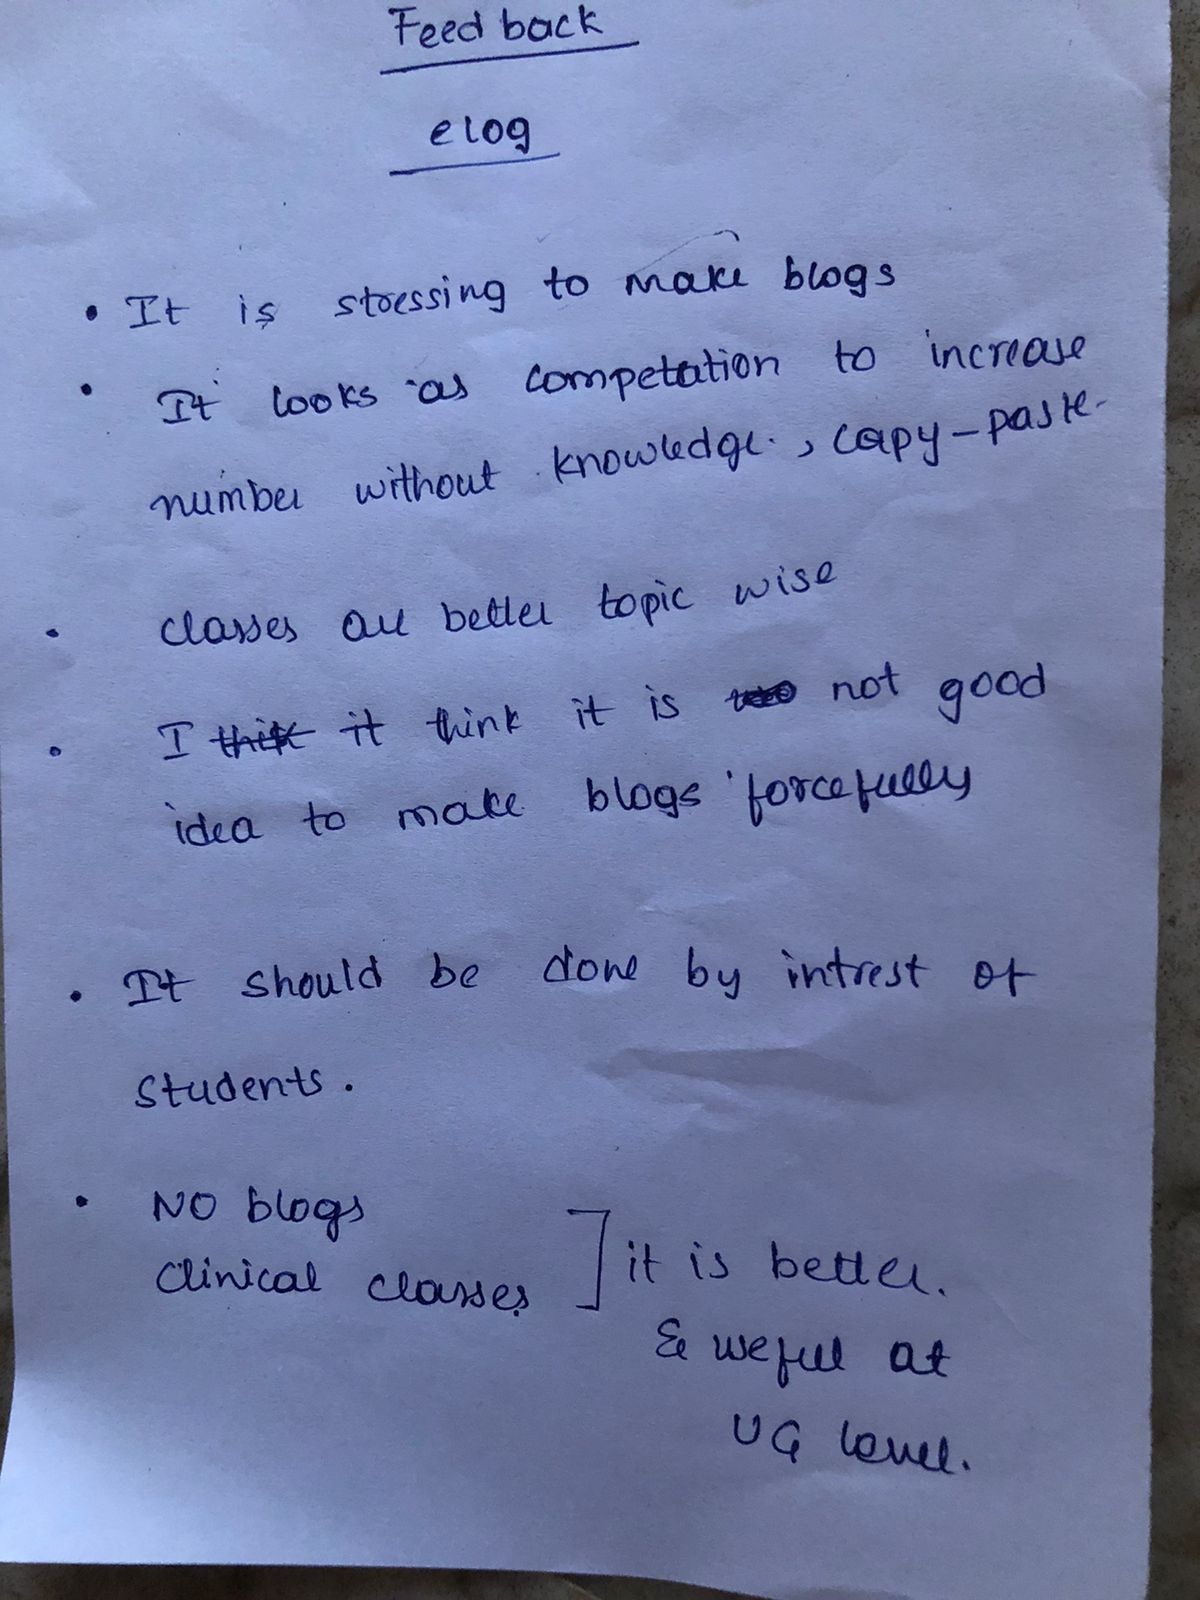 Feed back
elog
• It is stressing to make blogs
• It looks as competation to increase
number without knowledge., copy-paste.
• classes are better topic wise
• I thik it think it is not good
idea to make blogs forcefully
• It should be done by intrest of
students.
• NO blogs
clinical classes ] it is better.
& useful at
UG level.